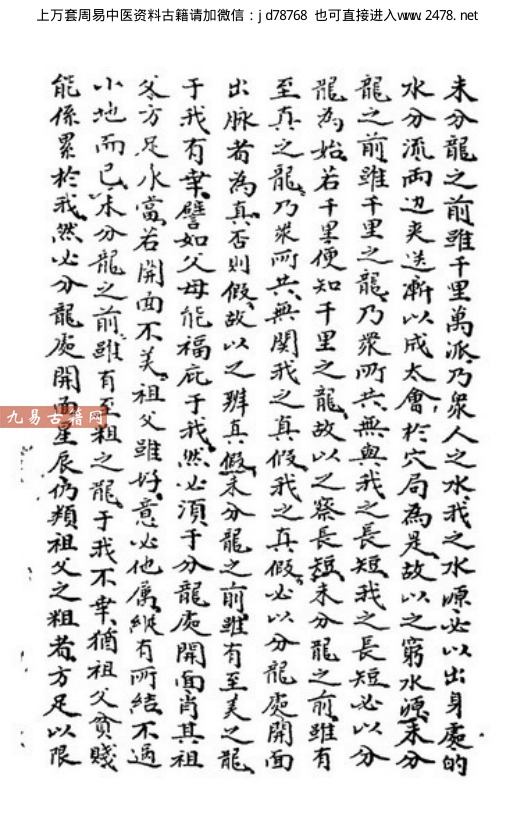 上万套周易中医资料古籍请加微信：jd78768 也可直接进入www.2478.net
未分龍之前雖千里萬派乃衆人之水我之水源必以出身處的
水分流両边夹送漸以成太會於穴局為是故以之窮水源未分
龍之前雖千里之龍乃衆所共無與我之長短我之長短必以分
龍為始若千里便知千里之龍故以之察長短未分龍之前雖有
至真之龍乃衆所共無関我之真假我之真假必以分龍處開面
出脉者為真否則假故以之辨真假未分龍之前雖有至美之龍
于我有幸譬如父母能福庇于我然必須于分龍處開面肖其祖
父方足水當若開面不美祖父雖好意必他属縦有所結不過
小地而已未分龍之前雖有至粗之龍于我不幸猶祖父貧賤
能係累於我然必分龍處開面星辰仍類祖父之粗者方足以限
九易古籍网